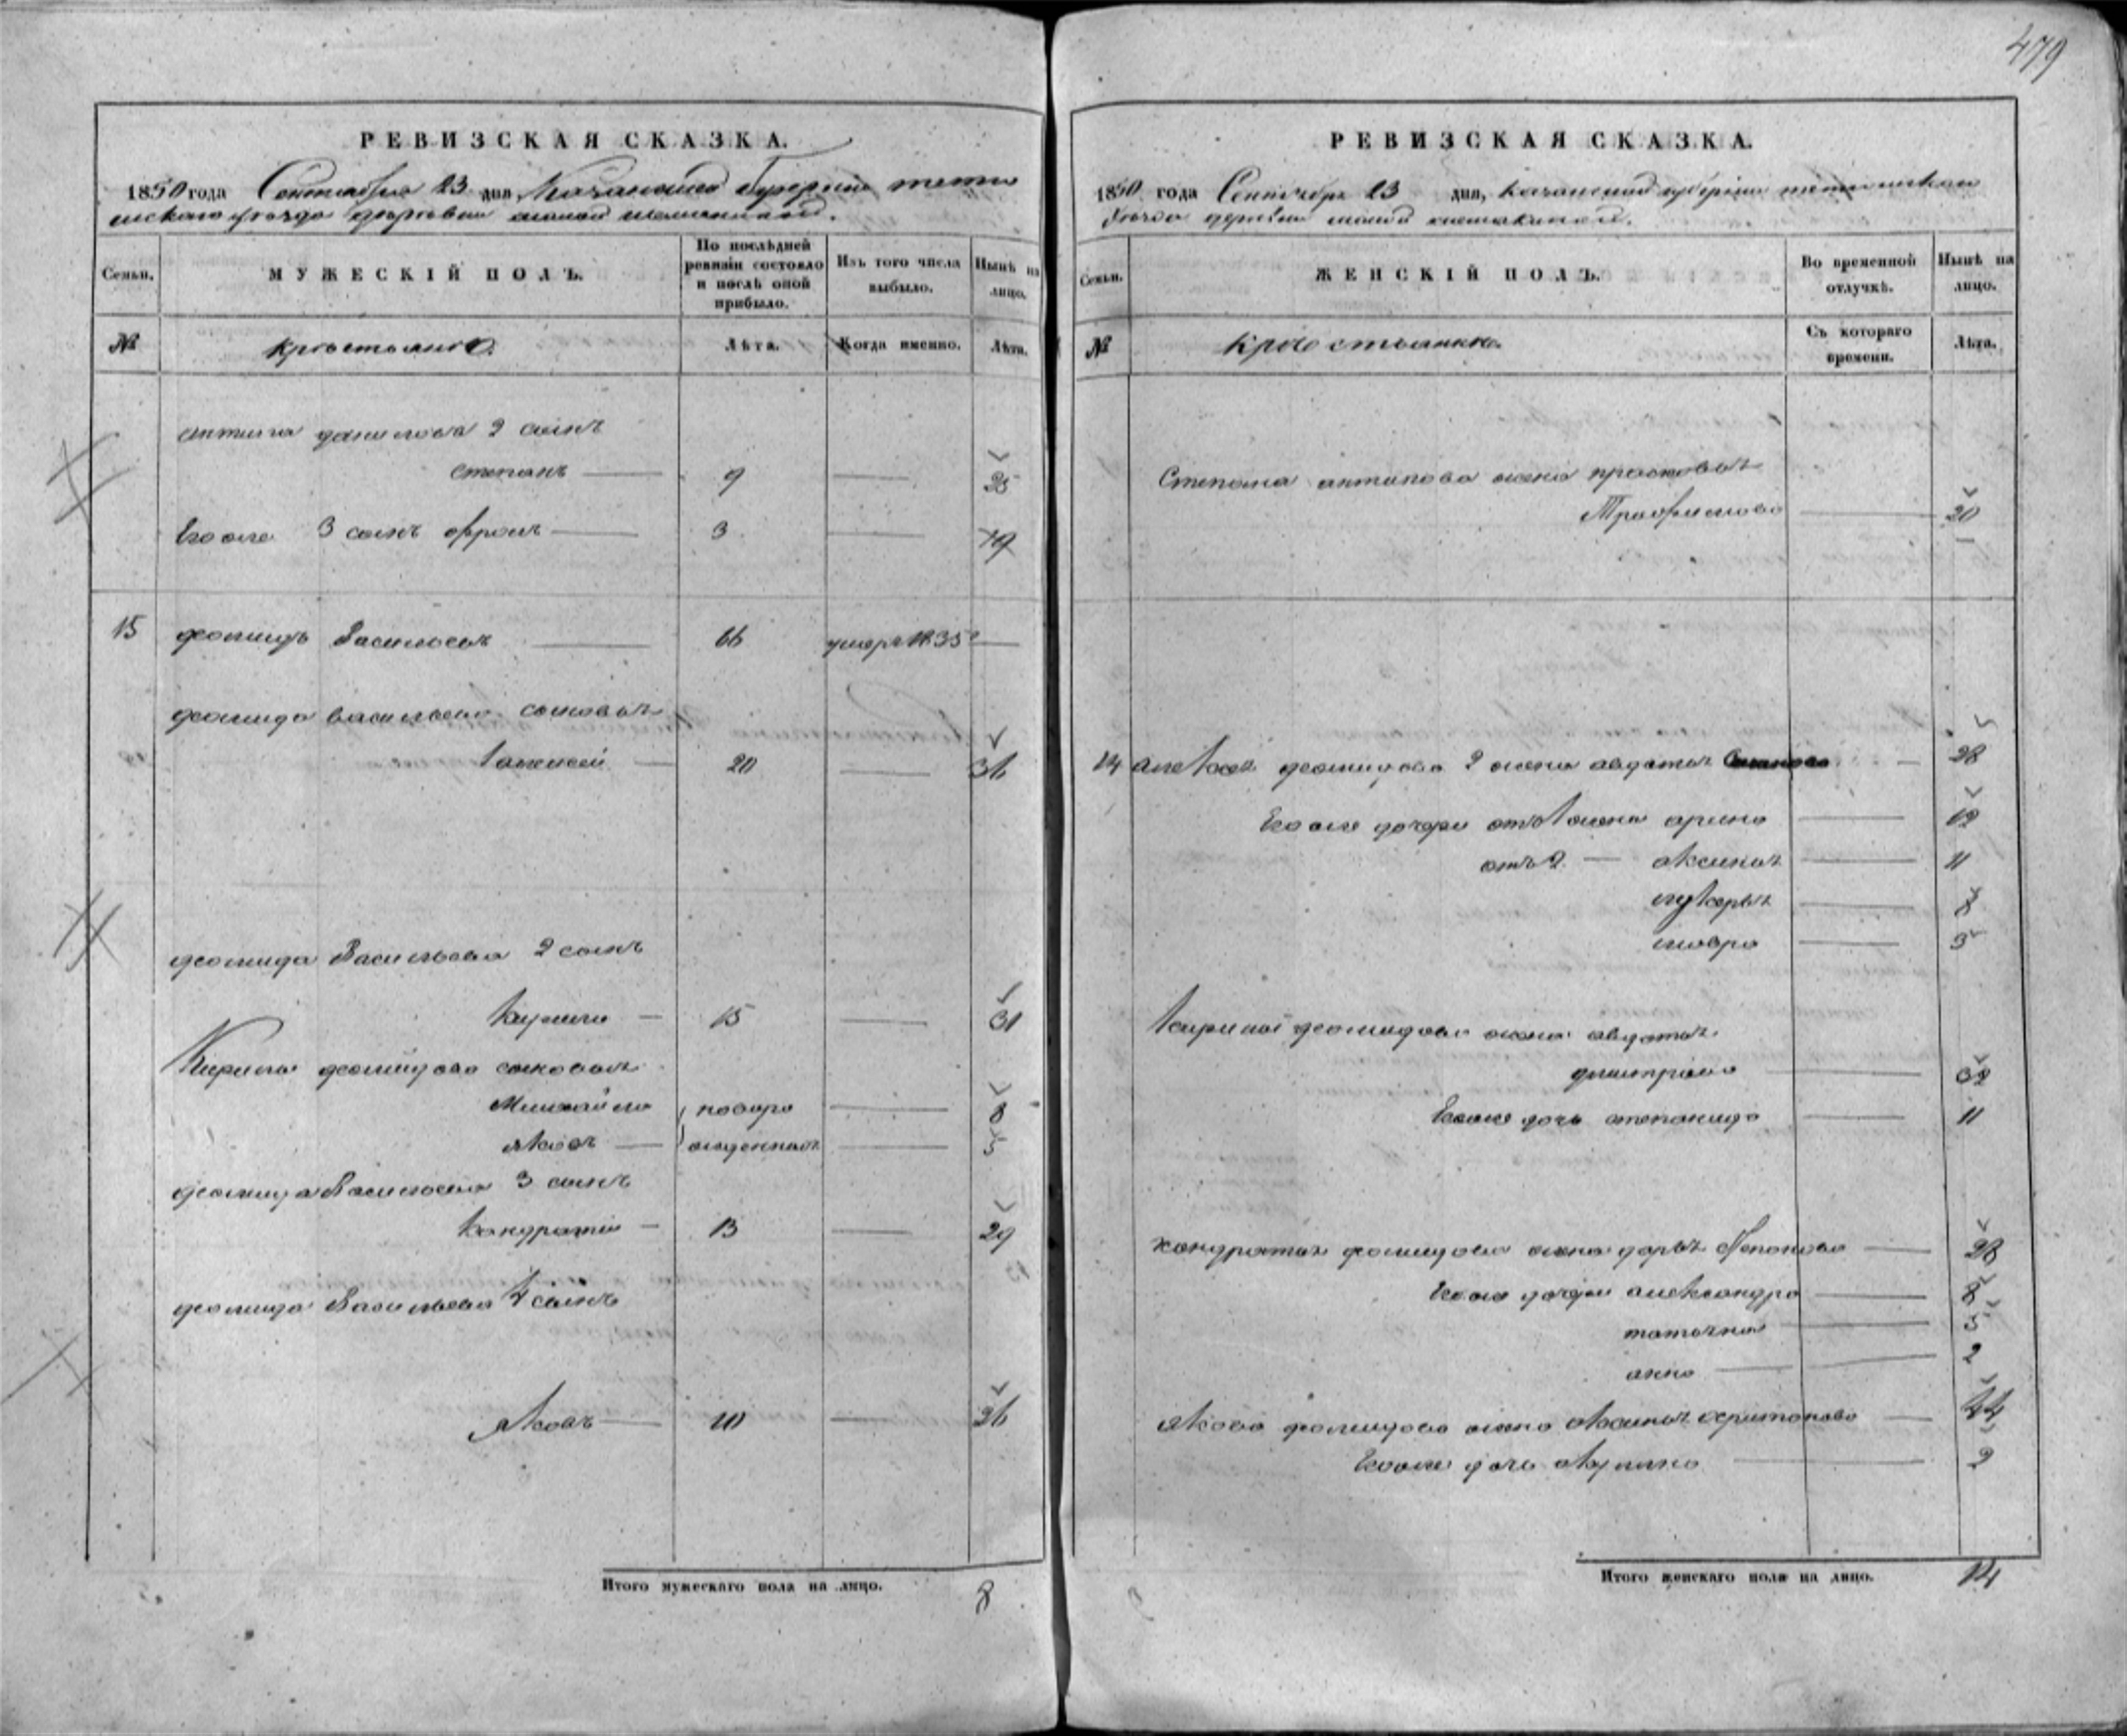 479
РЕВИЗСКАЯ СКАЗКА.
1850 года Сентября 23 дня, Казанской Губернии тетю
шскаго уѣзда деревни малой шемякиной.
Семьи. МУЖЕСКІЙ ПОЛЪ. По послѣдней ревизіи состояло и послѣ оной прибыло. Изъ того числа выбыло. Нынѣ на лицо.
№ крестьяне Лѣта. Когда именно. Лѣта.
антипа данилова 2 сынъ
степанъ 9 25
Его же 3 сынъ 3 19
15 Васильевъ 66 умеръ 1835
васильева сыновья
20 36
Васильева 2 сынъ
15 31
Кирила сыновья
Михайло новоро 8
яковъ жденныя 5
Васильева 3 сынъ
Кондратій 13 29
Васильева 4 сынъ
яковъ 10 26
Итого мужескаго пола на лицо. 8
РЕВИЗСКАЯ СКАЗКА.
1850 года Сентября 23 дня, казанской губерніи тетюшскаго
уѣзда деревни малой шемякиной.
Семьи. ЖЕНСКІЙ ПОЛЪ. Во временной отлучкѣ. Нынѣ на лицо.
№ крестьянки Съ котораго времени. Лѣта.
Степана антипова жена прасковья
Трофимова 20
14 2 жена авдотья 28
Его же дочери отъ 1 жены арина 19
отъ 2 аксинья 11
лукерья 8
мавра 5
жена авдотья
дмитріева 32
Его же дочь степанида 11
кондратья жена дарья 28
Его же дочери александра 8
татьяна 5
анна 2
якова жена аксинья харитонова 24
Его же дочь акулина 2
Итого женскаго пола на лицо. 14